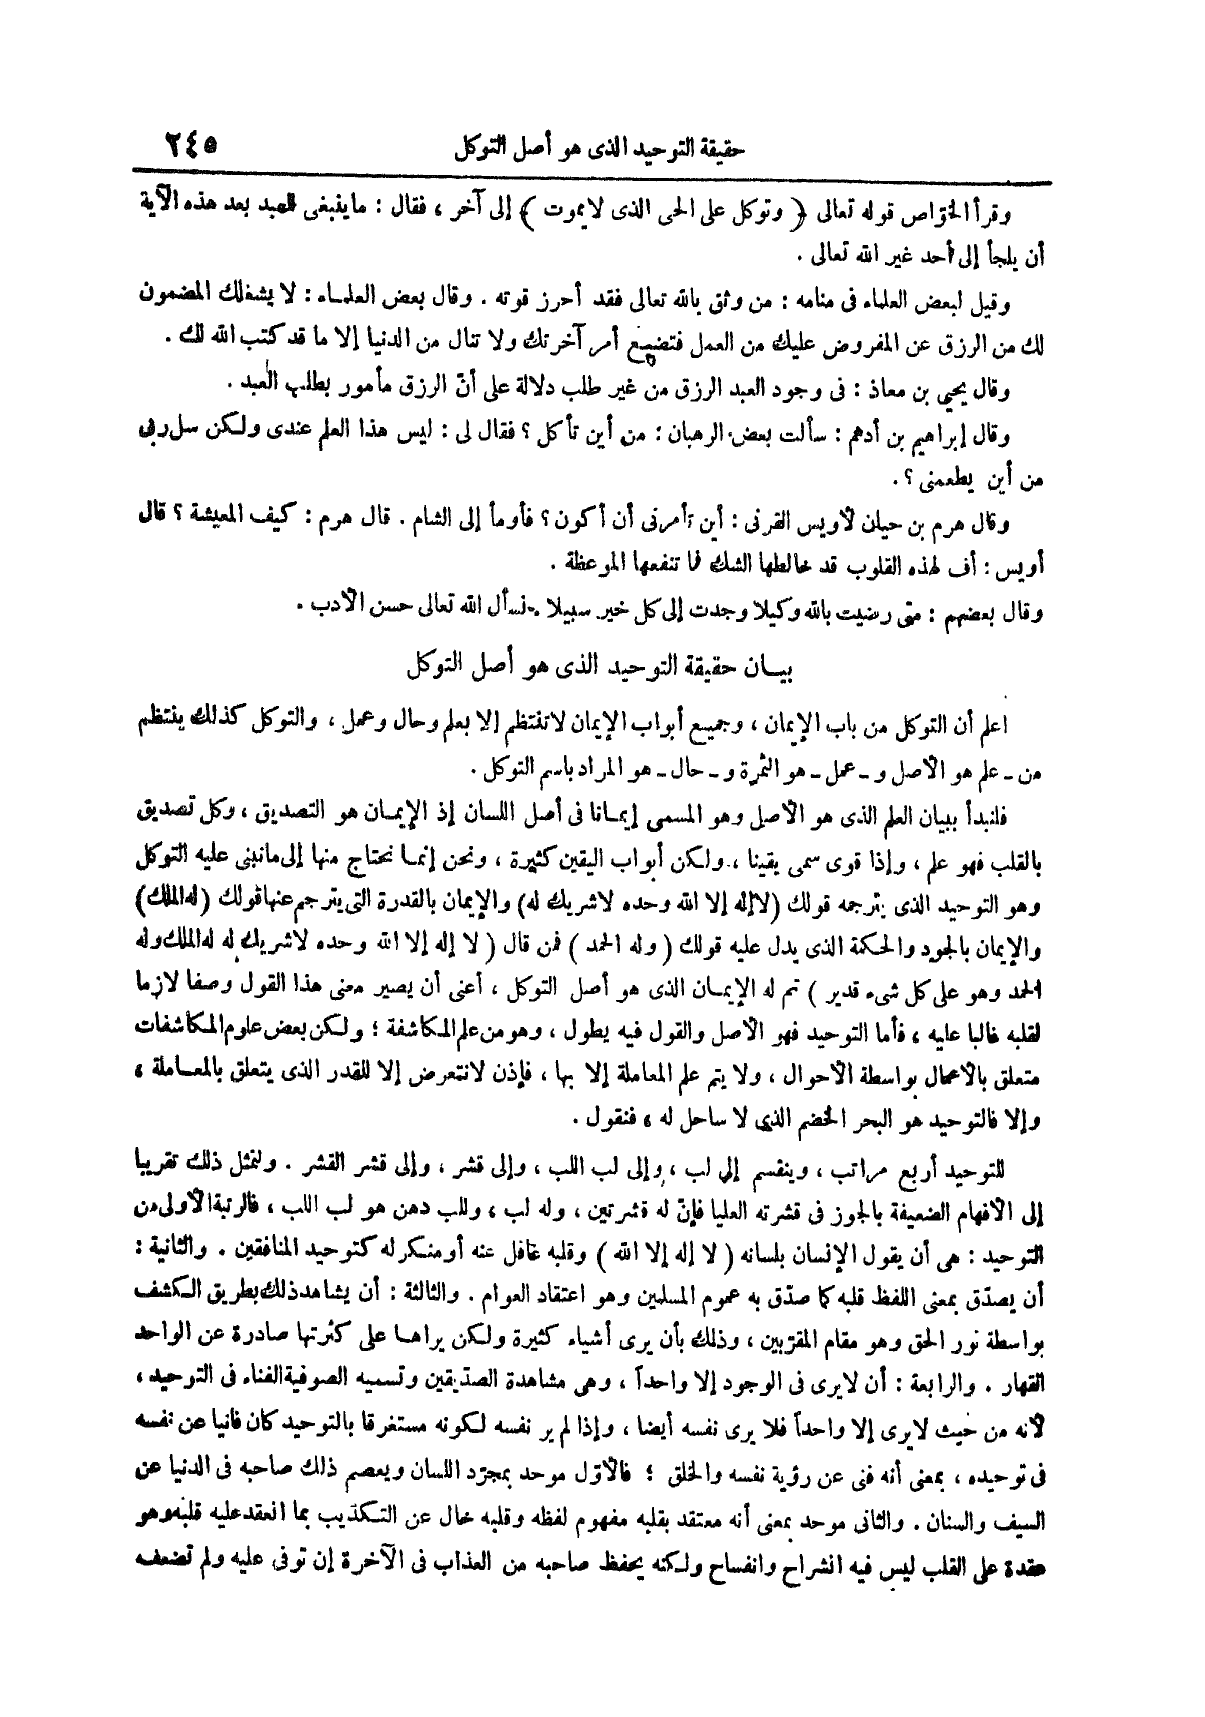 حقيقة التوحيد الذى هو أصل التوكل ٢٤٥
وقرأ الخوّاص قوله تعالى ﴿ وتوكل على الحى الذى لايموت ﴾ إلى آخر ، فقال : ماينبغى للعبد بعد هذه الآية
أن يلجأ إلى أحد غير الله تعالى .
وقيل لبعض العلماء فى منامه : من وثق بالله تعالى فقد أحرز قوته . وقال بعض العلماء : لا يشغلك المضمون
لك من الرزق عن المفروض عليك من العمل فتضيع أمر آخرتك ولا تنال من الدنيا إلا ما قد كتب الله لك .
وقال يحيى بن معاذ : فى وجود العبد الرزق من غير طلب دلالة على أنّ الرزق مأمور بطلب العبد .
وقال إبراهيم بن أدهم : سألت بعض الرهبان : من أين تأكل ؟ فقال لى : ليس هذا العلم عندى ولكن سل ربى
من أين يطعمنى ؟ .
وقال هرم بن حيان لأويس القرنى : أين تأمرنى أن أكون ؟ فأومأ إلى الشام . قال هرم : كيف المعيشة ؟ قال
أويس : أف لهذه القلوب قد خالطها الشك فما تنفعها الموعظة .
وقال بعضهم : متى رضيت بالله وكيلا وجدت إلى كل خير سبيلا . نسأل الله تعالى حسن الأدب .
بيان حقيقة التوحيد الذى هو أصل التوكل
اعلم أن التوكل من باب الإيمان ، وجميع أبواب الإيمان لاتنتظم إلا بعلم وحال وعمل ، والتوكل كذلك ينتظم
من ـ علم هو الأصل و ـ عمل ـ هو الثمرة و ـ حال ـ هو المراد باسم التوكل .
فلنبدأ ببيان العلم الذى هو الأصل وهو المسمى إيمانا فى أصل اللسان إذ الإيمان هو التصديق ، وكل تصديق
بالقلب فهو علم ، وإذا قوى سمى يقينا ، ولكن أبواب اليقين كثيرة ، ونحن إنما نحتاج منها إلى مانبنى عليه التوكل
وهو التوحيد الذى يترجمه قولك (لاإله إلا الله وحده لاشريك له) والإيمان بالقدرة التى يترجم عنها قولك (له الملك)
والإيمان بالجود والحكمة الذى يدل عليه قولك ( وله الحمد ) فمن قال ( لا إله إلا الله وحده لاشريك له له الملك وله
الحمد وهو على كل شىء قدير ) تم له الإيمان الذى هو أصل التوكل ، أعنى أن يصير معنى هذا القول وصفا لازما
لقلبه غالبا عليه ، فأما التوحيد فهو الأصل والقول فيه يطول ، وهو من علم المكاشفة ؛ ولكن بعض علوم المكاشفات
متعلق بالأعمال بواسطة الأحوال ، ولا يتم علم المعاملة إلا بها ، فإذن لانتعرض إلا للقدر الذى يتعلق بالمعاملة ،
وإلا فالتوحيد هو البحر الخضم الذى لا ساحل له ، فنقول .
للتوحيد أربع مراتب ، وينقسم إلى لب ، وإلى لب اللب ، وإلى قشر ، وإلى قشر القشر . ولنمثل ذلك تقريبا
إلى الأفهام الضعيفة بالجوز فى قشرته العليا فإنّ له قشرتين ، وله لب ، وللب دهن هو لب اللب ، فالرتبة الأولى من
التوحيد : هى أن يقول الإنسان بلسانه ( لا إله إلا الله ) وقلبه غافل عنه أو منكر له كتوحيد المنافقين . والثانية :
أن يصدّق بمعنى اللفظ قلبه كما صدّق به عموم المسلمين وهو اعتقاد العوام . والثالثة : أن يشاهد ذلك بطريق الكشف
بواسطة نور الحق وهو مقام المقرّبين ، وذلك بأن يرى أشياء كثيرة ولكن يراها على كثرتها صادرة عن الواحد
القهار . والرابعة : أن لايرى فى الوجود إلا واحداً ، وهى مشاهدة الصدّيقين وتسميه الصوفية الفناء فى التوحيد ،
لأنه من حيث لايرى إلا واحداً فلا يرى نفسه أيضا ، وإذا لم ير نفسه لكونه مستغرقا بالتوحيد كان فانيا عن نفسه
فى توحيده ، بمعنى أنه فنى عن رؤية نفسه والخلق ؛ فالأوّل موحد بمجرّد اللسان ويعصم ذلك صاحبه فى الدنيا عن
السيف والسنان . والثانى موحد بمعنى أنه معتقد بقلبه مفهوم لفظه وقلبه خال عن التكذيب بما انعقد عليه قلبه وهو
عقدة على القلب ليس فيه انشراح وانفساح ولكنه يحفظ صاحبه من العذاب فى الآخرة إن توفى عليه ولم تضعف